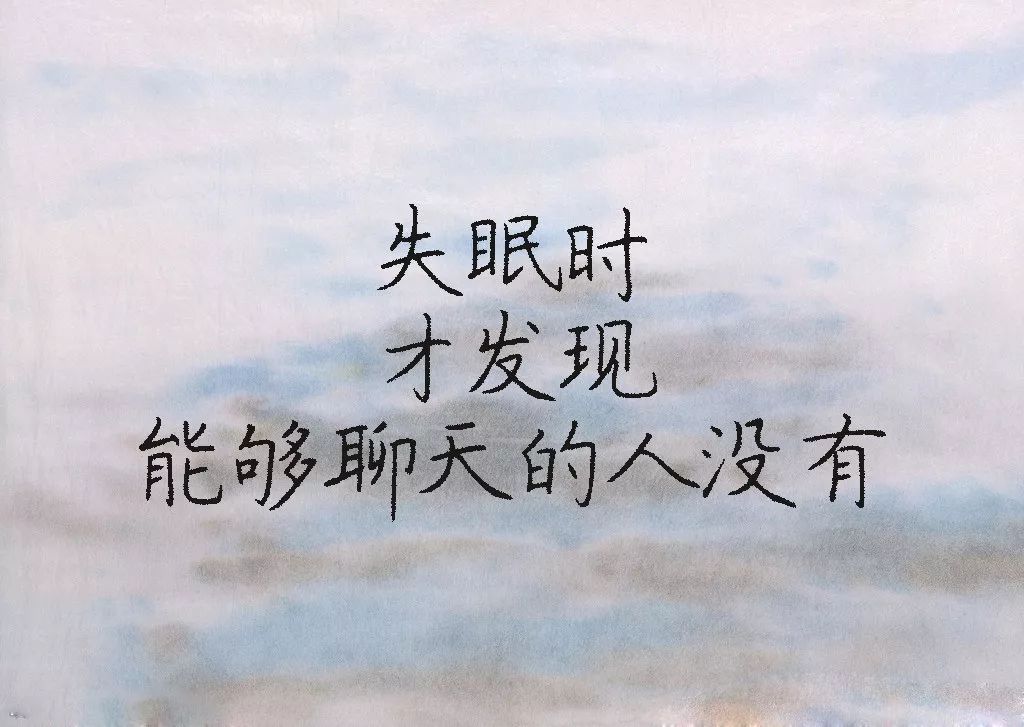 失眠时
才发现
能够聊天的人没有